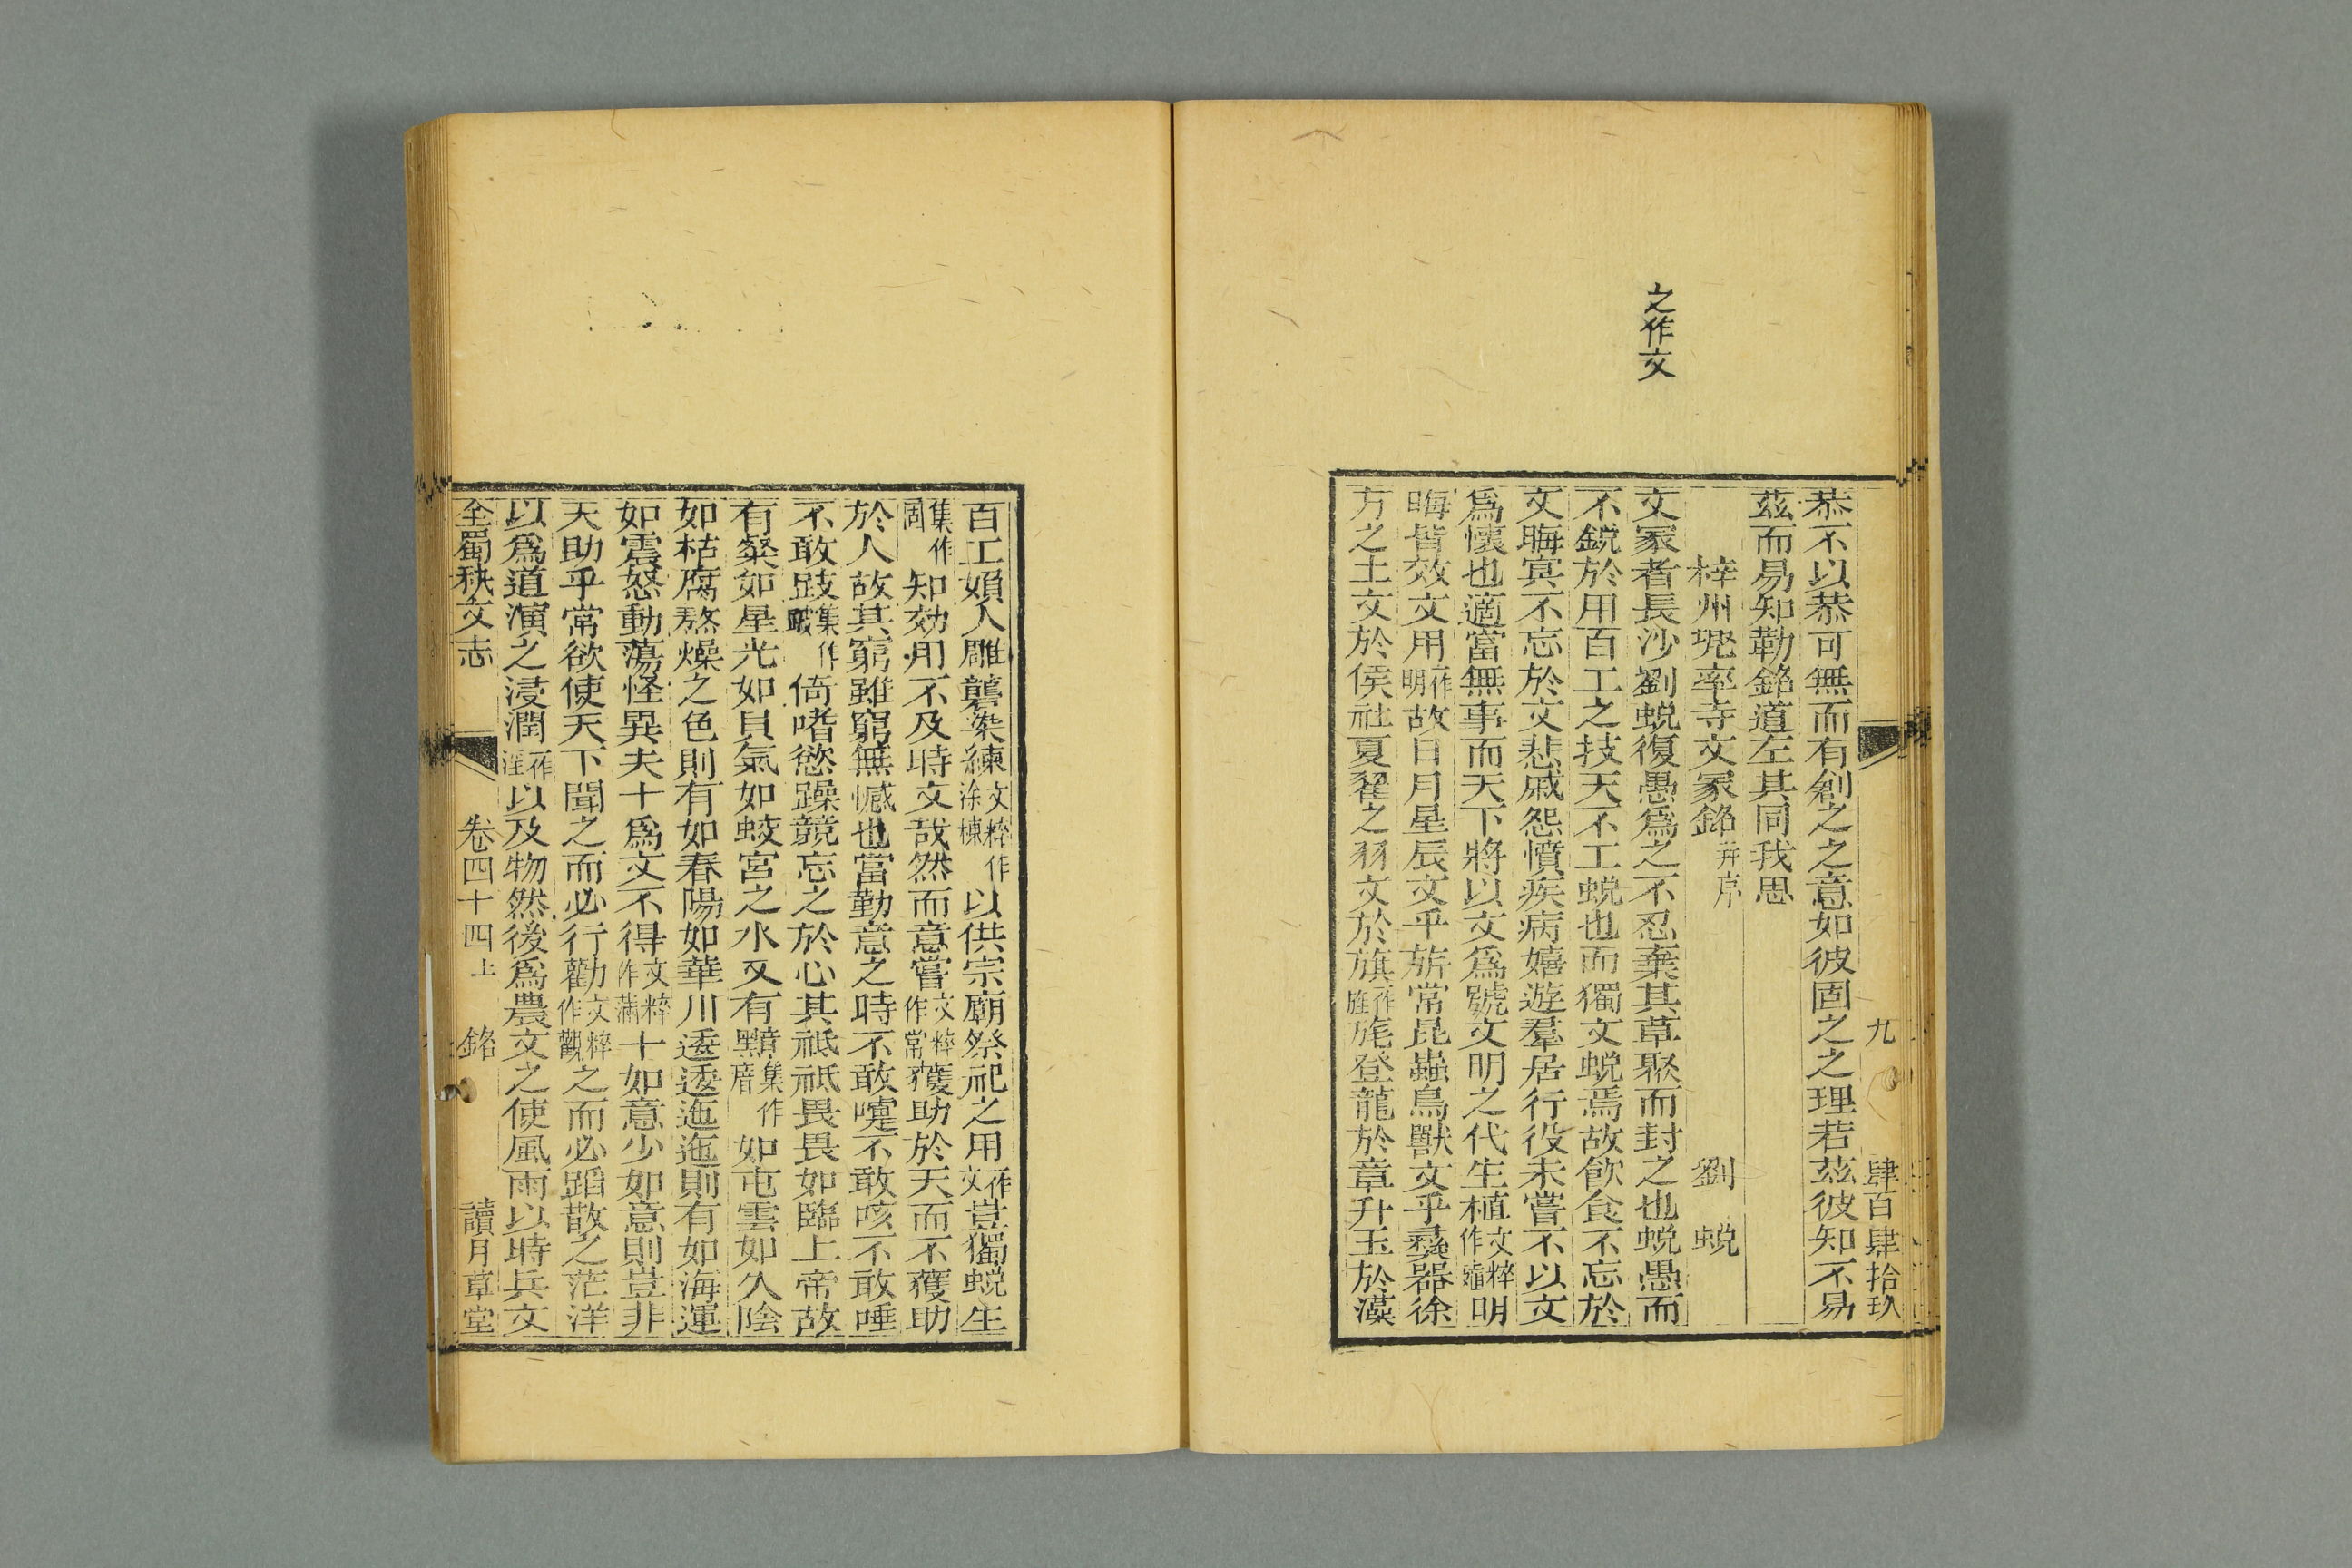 之作文
九　肆百肆拾玖
恭不以恭可無而有創之之意如彼固之之理若茲彼知不易
茲而易知勒銘道左其同我思
梓州兠率寺文冢銘并序　劉蛻
文冢者長沙劉蛻復愚爲之不忍棄其草聚而封之也蛻愚而
不銳於用百工之技天不工蛻也而獨文蛻焉故飲食不忘於
文晦冥不忘於文悲戚怨憤疾病嬉遊羣居行役未嘗不以文
爲懷也適當無事而天下將以文爲號文明之代生植文粹作殖明
晦皆效文用一作明故日月星辰文乎旂常昆蟲鳥獸文乎彝器徐
方之土文於侯社夏翟之羽文於旗一作旌旄登龍於章升玉於藻
百工婦人雕礱染練文粹作涂楝以供宗廟祭祀之用一作文豈獨蛻生
集作固知効用不及時文哉然而意嘗文粹作常獲助於天而不獲助
於人故其窮雖窮無憾也當勤意之時不敢嚏不敢咳不敢唾
不敢跂集作倚嗜慾躁競忘之於心其祗祗畏畏如臨上帝故
有粲如星光如貝氣如蛟宮之水又有黯集作如屯雲如久陰
如枯腐熬燥之色則有如春陽如華川逶逶迤迤則有如海運
如震怒動蕩怪異夫十爲文不得文粹作滿十如意少如意則豈非
天助乎常欲使天下聞之而必行勸文粹作觀之而必蹈散之茫洋
以爲道演之浸潤一作淫以及物然後爲農文之使風雨以時兵文
全蜀秇文志　卷四十四上　銘　讀月草堂